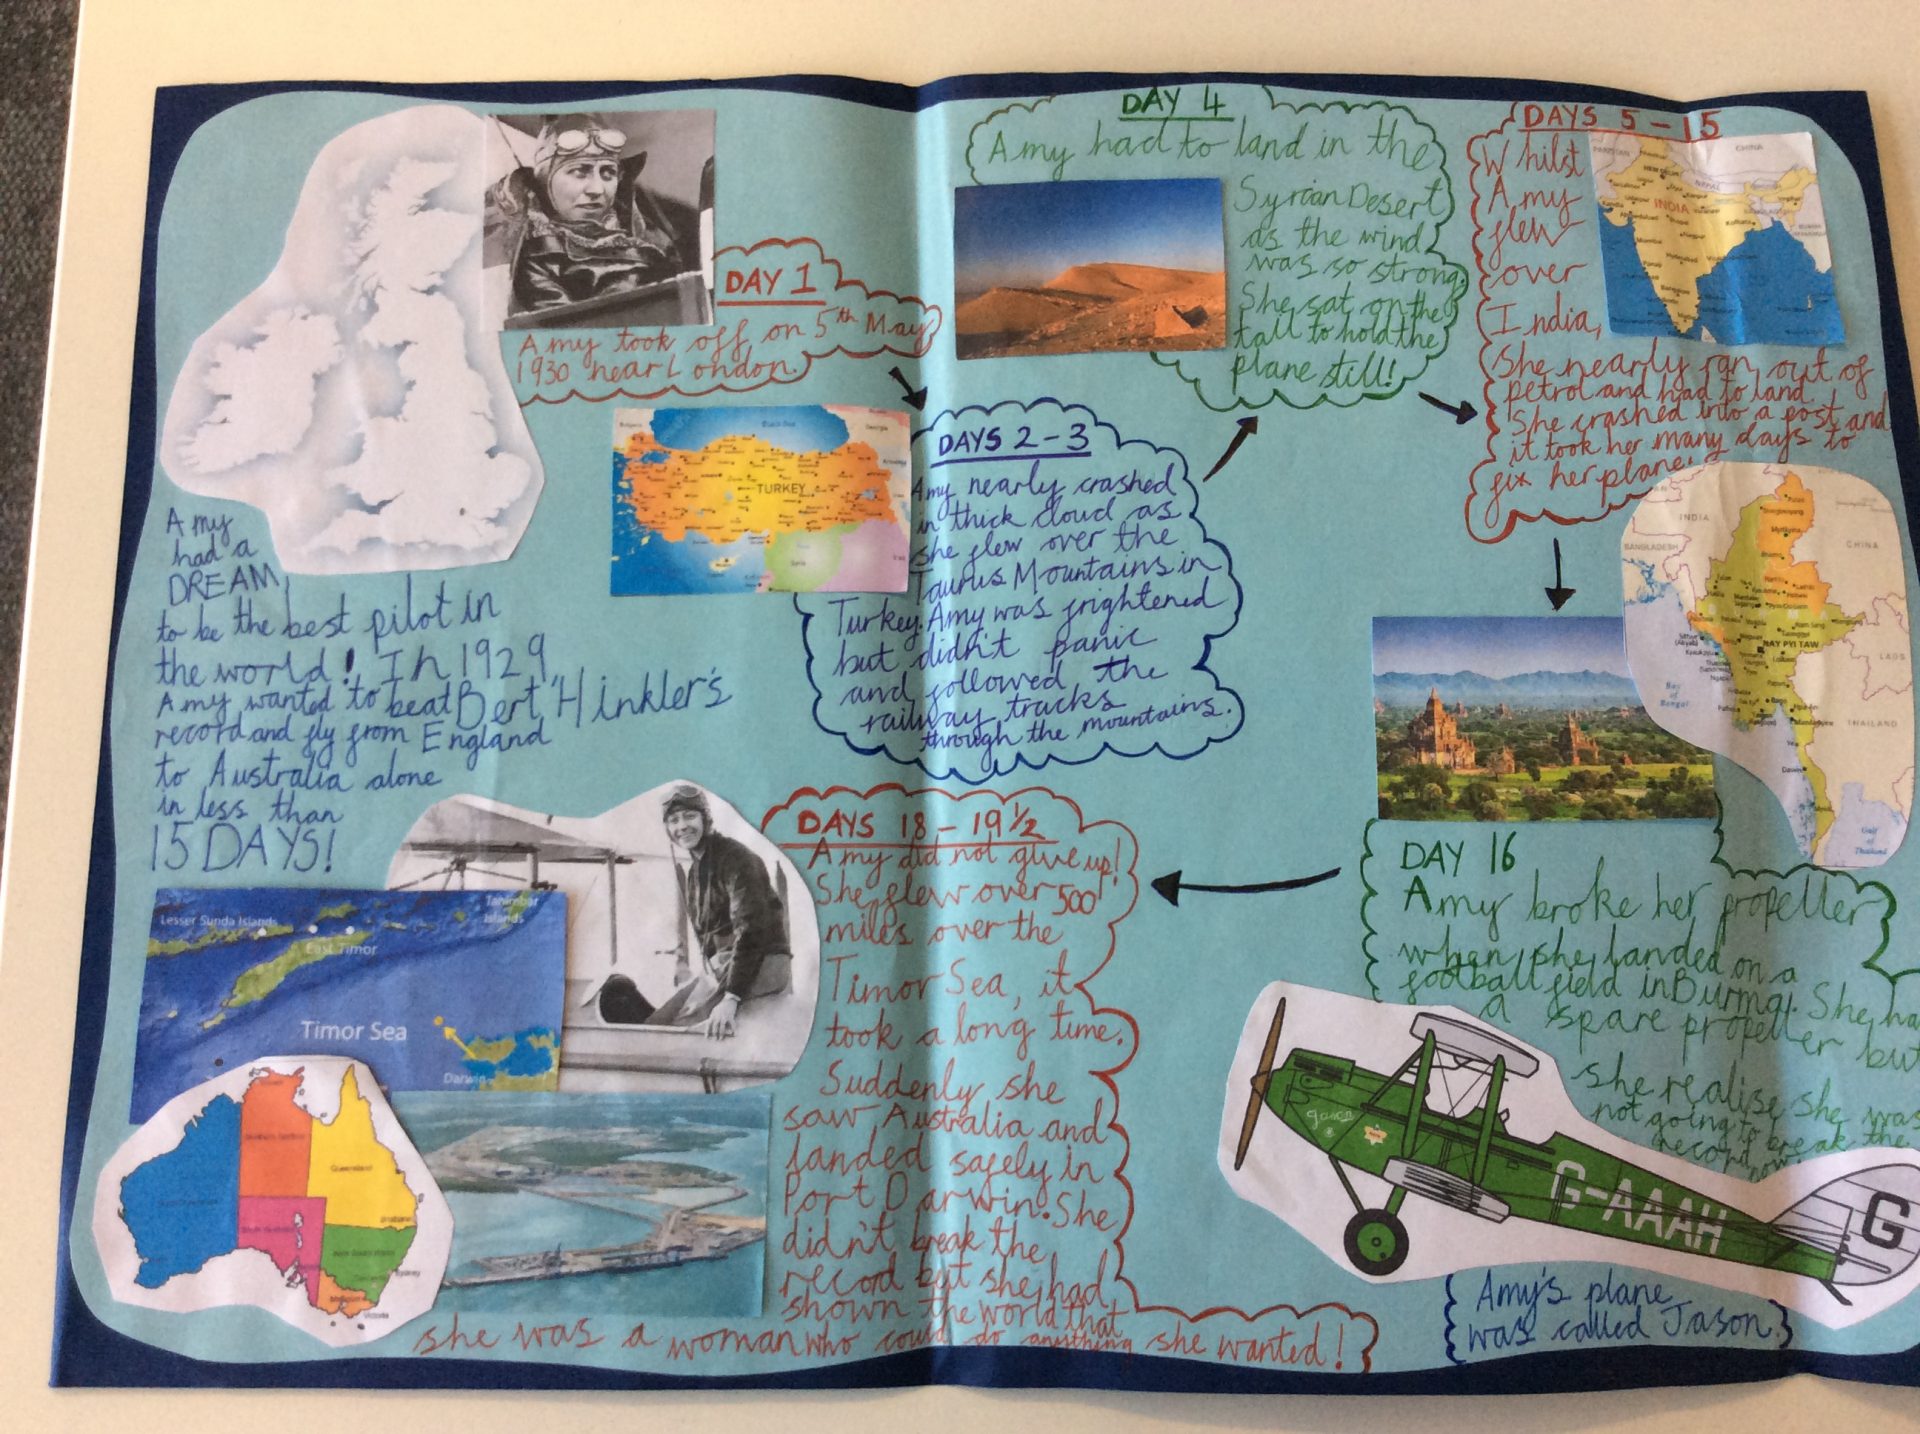 Amy
had a
DREAM
to be the best pilot in
the world! In 1929
Amy wanted to beat Bert Hinkler's
record and fly from England
to Australia alone
in less than
15 DAYS!
DAY 1
Amy took off on 5th May
1930 near London.
TURKEY
DAYS 2-3
Amy nearly crashed
in thick cloud as
she flew over the
Taurus Mountains in
Turkey. Amy was frightened
but didn't panic
and followed the
railway tracks
through the mountains.
DAY 4
Amy had to land in the
Syrian Desert
as the wind
was so strong.
She sat on the
tail to hold the
plane still!
DAYS 5-15
Whilst
Amy
flew
over
India,
she nearly ran out of
petrol and had to land.
She crashed into a post and
it took her many days to
fix her plane.
PAKISTAN
CHINA
NEPAL
INDIA
INDIA
BANGLADESH
CHINA
NAY PYI TAW
LAOS
THAILAND
Bay
of
Bengal
Gulf
of
Thailand
DAY 16
Amy broke her propeller
when she landed on a
football field in Burma. She ha
a spare propeller but
she realise she was
not going to break the
record now.
DAYS 18-19½
Amy did not give up!
She flew over 500
miles over the
Timor Sea, it
took a long time.
Suddenly she
saw Australia and
landed safely in
Port Darwin. She
didn't break the
record but she had
shown the world that
she was a woman who could do anything she wanted!
Lesser Sunda Islands
Tanimbar
Islands
East Timor
Timor Sea
Darwin
Queensland
Jason
G-AAAH
G
Amy's plane
was called Jason.